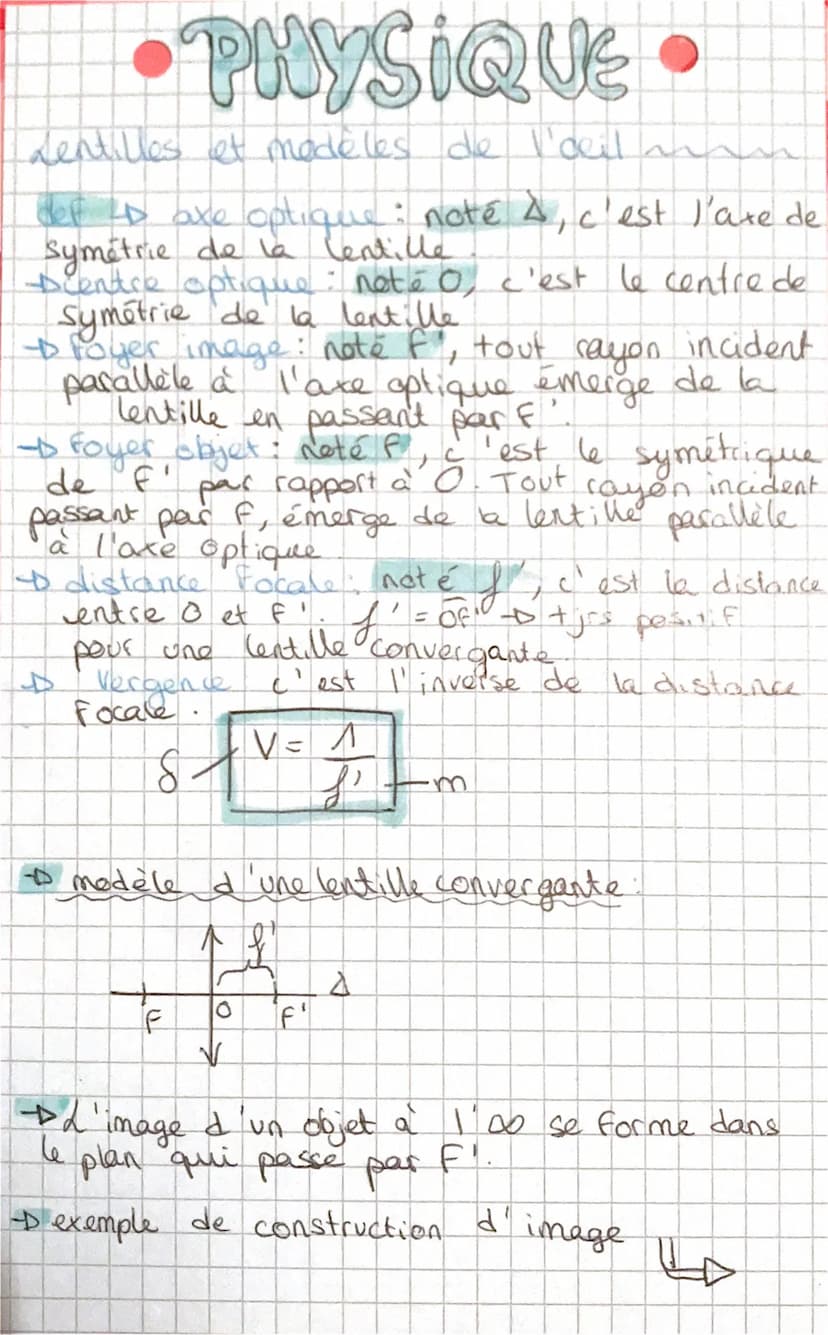 • PHYSiQUE •
Lentilles et modèles de l'oeil
def → axe optique : noté Δ, c'est l'axe de
symétrie de la lentille.
→ centre optique : noté O, c'est le centre de
symétrie de la lentille
→ Foyer image : noté F', tout rayon incident
parallèle à l'axe optique émerge de la
lentille en passant par F'.
→ Foyer objet : noté F, c'est le symétrique
de F' par rapport à O. Tout rayon incident
passant par F, émerge de la lentille parallèle
à l'axe optique
→ distance Focale : noté f', c'est la distance
entre O et F'. f' = OF' → tjrs positif
pour une lentille convergante.
→ Vergence c'est l'inverse de la distance
Focale.
δ V = 1/f' m
→ modèle d'une lentille convergante :
f'
Δ
F O F'
→ L'image d'un objet à l'∞ se forme dans
le plan qui passe par F'.
→ exemple de construction d'image